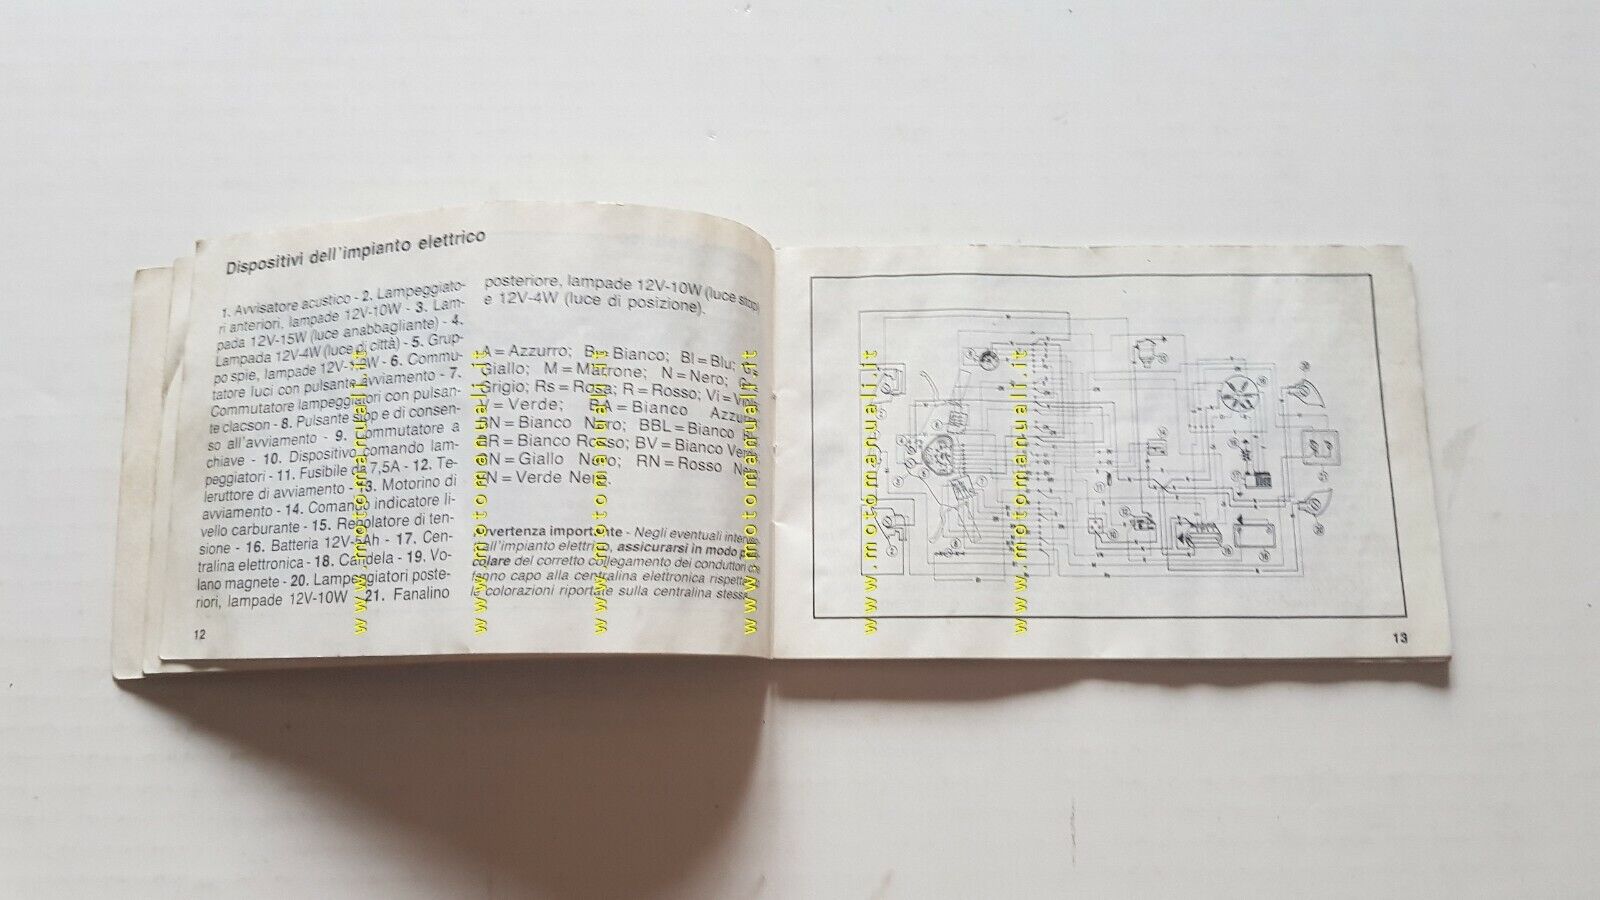 Dispositivi dell'impianto elettrico
1. Avvisatore acustico - 2. Lampeggiato-
ri anteriori, lampade 12V-10W - 3. Lam-
pada 12V-15W (luce anabbagliante) - 4.
Lampada 12V-4W (luce di città) - 5. Grup-
po spie, lampade - 6. Commu-
tatore luci con pulsante avviamento - 7.
Commutatore lampeggiatori con pulsan-
te clacson - 8. Pulsante stop e di consen-
so all'avviamento - 9. Commutatore a
chiave - 10. Dispositivo comando lam-
peggiatori - 11. Fusibile da 7,5A - 12. Te-
leruttore di avviamento - 13. Motorino di
avviamento - 14. Comando indicatore li-
vello carburante - 15. Regolatore di ten-
sione - 16. Batteria - 17. Cen-
tralina elettronica - 18. Candela - 19. Vo-
lano magnete - 20. Lampeggiatori poste-
riori, lampade 12V-10W - 21. Fanalino
12
posteriore, lampade 12V-10W (luce stop)
e 12V-4W (luce di posizione).
A = Azzurro; B = Bianco; Bl = Blu;
Giallo; M = Marrone; N = Nero;
Grigio; Rs = Rosa; R = Rosso;
V = Verde; BA = Bianco
BN = Bianco Nero; BBL = Bianco
BR = Bianco Rosso; BV = Bianco
GN = Giallo Nero; RN = Rosso
VN = Verde Nero.
Avvertenza importante - Negli eventuali
all'impianto elettrico, assicurarsi in modo
colare del corretto collegamento dei conduttori
fanno capo alla centralina elettronica
le colorazioni riportate sulla centralina
13
www.motomanuali.it
www.motomanuali.it
www.motomanuali.it
www.motomanuali.it
www.motomanuali.it
www.motomanuali.it